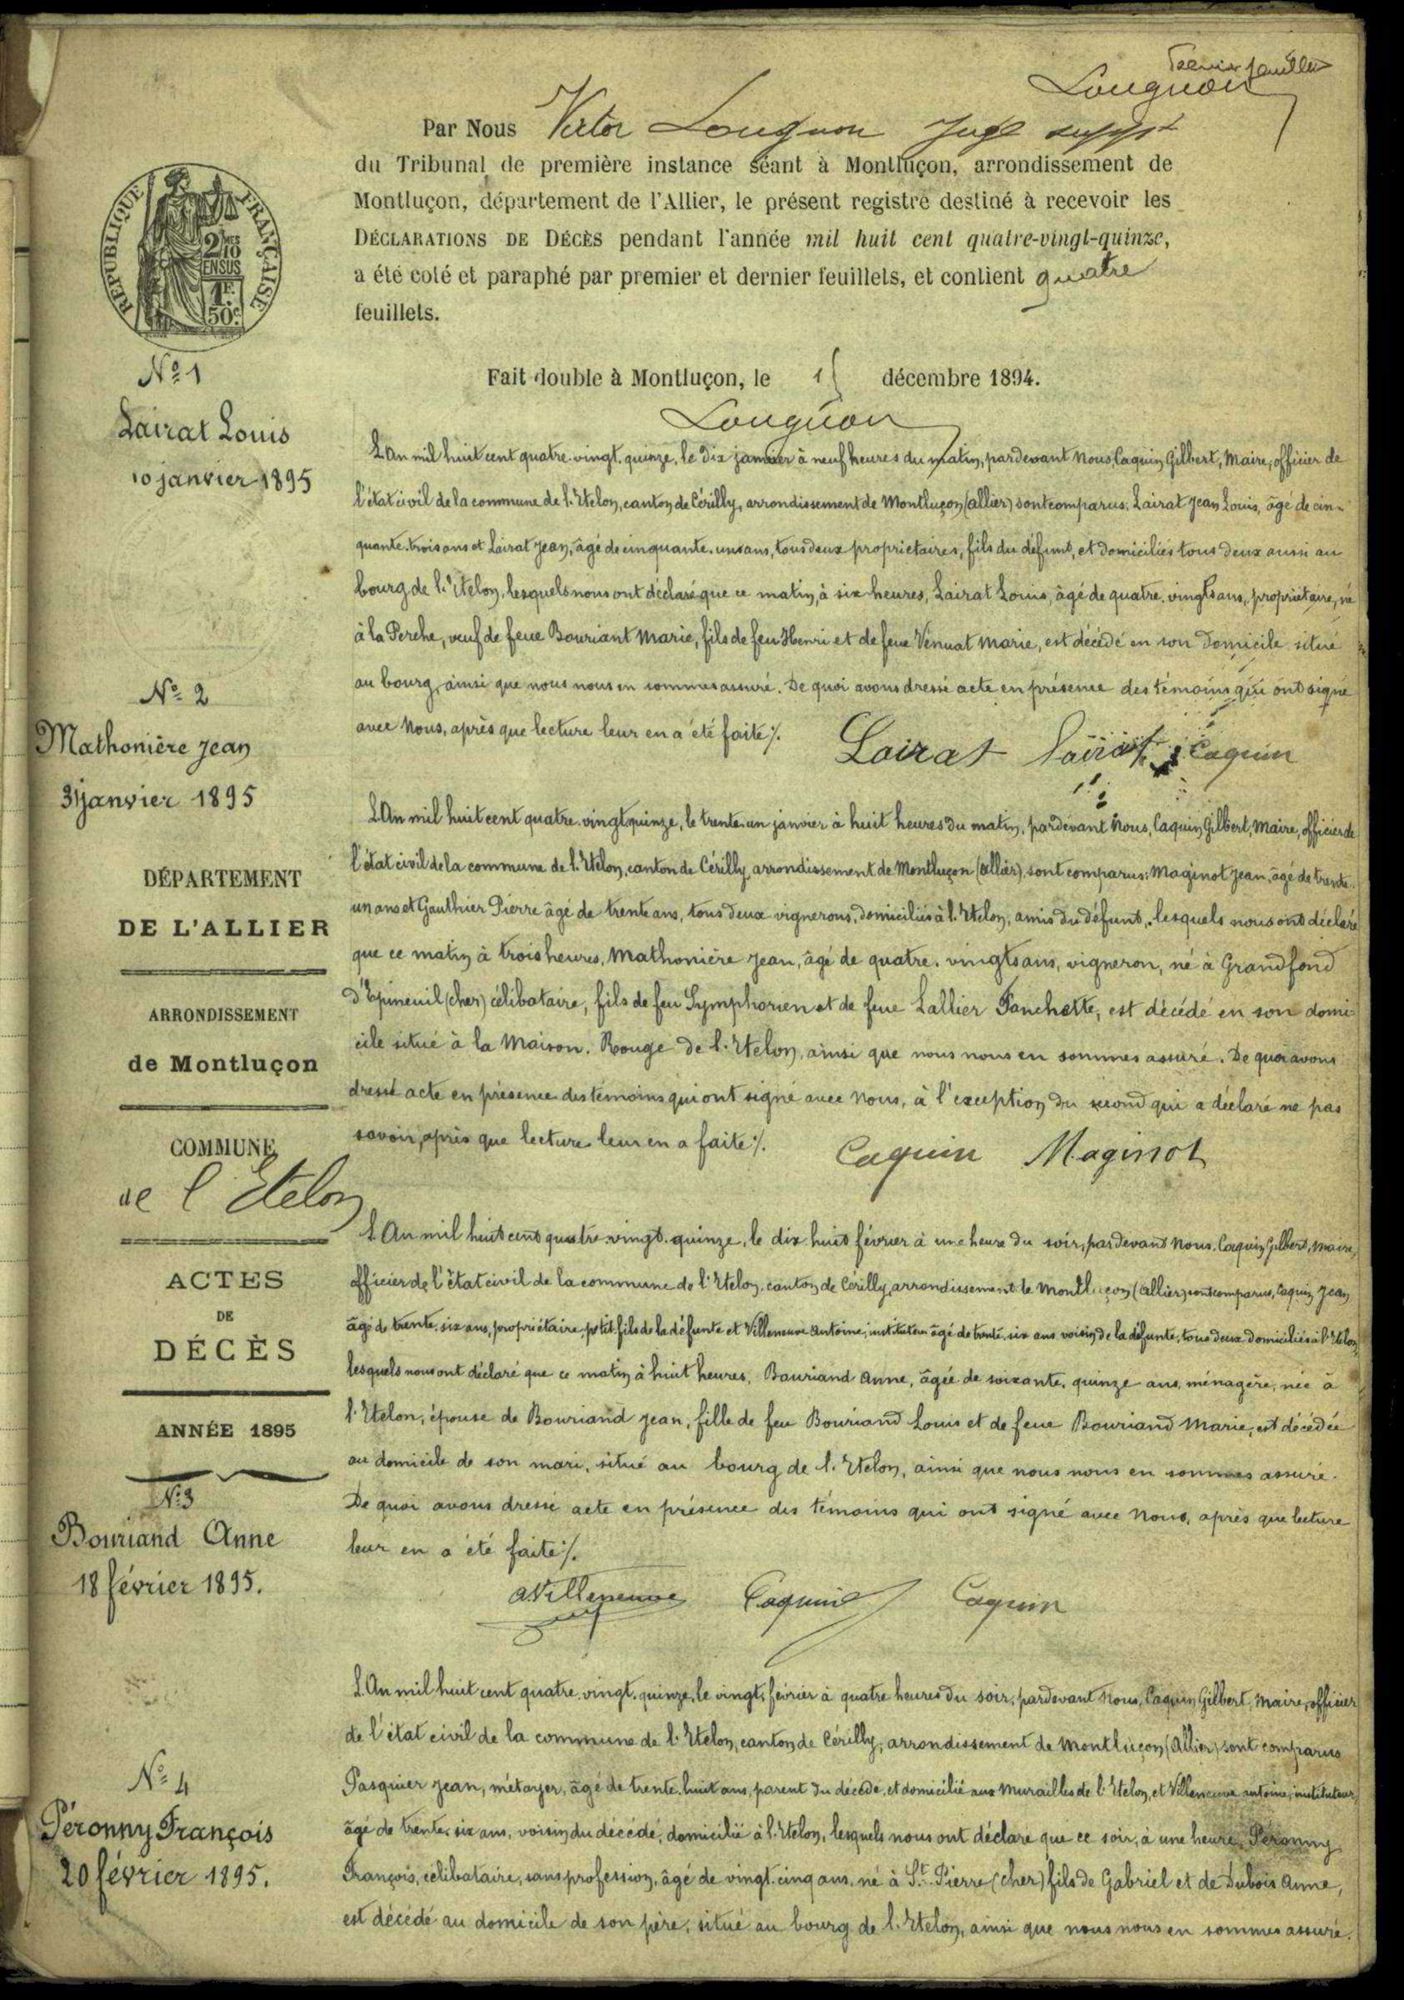 Premier feuillet
Louguon
Par Nous Victor Louguon Juge suppt
du Tribunal de première instance séant à Montluçon, arrondissement de
Montluçon, département de l'Allier, le présent registre destiné à recevoir les
DÉCLARATIONS DE DÉCÈS pendant l'année mil huit cent quatre-vingt-quinze,
a été coté et paraphé par premier et dernier feuillets, et contient quatre
feuillets.
Fait double à Montluçon, le 15 décembre 1894.
Louguon
RÉPUBLIQUE FRANÇAISE
2/10
EN SUS
1F
50c
N° 1
Lairat Louis
10 janvier 1895
L'An mil huit cent quatre-vingt-quinze, le dix janvier à neuf heures du matin, pardevant Nous Caquin Gilbert, Maire, officier de
l'état civil de la commune de l'Etelon, canton de Cérilly, arrondissement de Montluçon (Allier) sont comparus: Lairat Jean Louis, âgé de cin-
quante-trois ans et Lairat Jean, âgé de cinquante-un ans, tous deux propriétaires, fils du défunt, et domiciliés tous deux aussi au
bourg de l'Etelon, lesquels nous ont déclaré que ce matin, à six heures, Lairat Louis, âgé de quatre-vingts ans, propriétaire, né
à la Perche, veuf de feue Bouriant Marie, fils de feu Henri et de feue Vénuat Marie, est décédé en son domicile situé
au bourg, ainsi que nous nous en sommes assuré. De quoi avons dressé acte en présence des témoins qui ont signé
avec Nous, après que lecture leur en a été faite ./.
Lairat Lairat Caquin
N° 2
Mathonière Jean
31 janvier 1895
L'An mil huit cent quatre-vingt quinze, le trente-un janvier à huit heures du matin, pardevant Nous, Caquin Gilbert, Maire, officier de
l'état civil de la commune de l'Etelon, canton de Cérilly, arrondissement de Montluçon (Allier), sont comparus: Maginot Jean, âgé de trente-
un ans et Gauthier Pierre âgé de trente ans, tous deux vignerons, domiciliés à l'Etelon, amis du défunt, lesquels nous ont déclaré
que ce matin à trois heures, Mathonière Jean, âgé de quatre-vingts ans, vigneron, né à Grandfond
d'Epineuil (Cher) célibataire, fils de feu Symphorien et de feue Lallier Fanchette, est décédé en son domi-
cile situé à la Maison-Rouge de l'Etelon, ainsi que nous nous en sommes assuré. De quoi avons
dressé acte en présence des témoins qui ont signé avec Nous, à l'exception du second qui a déclaré ne pas
savoir, après que lecture leur en a faite ./.
Caquin Maginot
DÉPARTEMENT
DE L'ALLIER
ARRONDISSEMENT
de Montluçon
COMMUNE
de l'Etelon
ACTES
DE
DÉCÈS
ANNÉE 1895
N° 3
Bouriand Anne
18 février 1895.
L'An mil huit cent quatre-vingt-quinze, le dix-huit février à une heure du soir, pardevant Nous, Caquin Gilbert, Maire,
officier de l'état civil de la commune de l'Etelon, canton de Cérilly, arrondissement de Montluçon (Allier) sont comparus, Caquin Jean
âgé de trente-six ans, propriétaire, petit-fils de la défunte et Villeneuve Antoine, instituteur âgé de trente-six ans voisin de la défunte, tous deux domiciliés à l'Etelon,
lesquels nous ont déclaré que ce matin à huit heures, Bouriand Anne, âgée de soixante-quinze ans, ménagère, née à
l'Etelon, épouse de Bouriand Jean, fille de feu Bouriand Louis et de feue Bouriand Marie, est décédée
au domicile de son mari, situé au bourg de l'Etelon, ainsi que nous nous en sommes assuré.
De quoi avons dressé acte en présence des témoins qui ont signé avec Nous, après que lecture
leur en a été faite ./.
AVilleneuve Caquin Caquin
N° 4
Péronny François
20 février 1895.
L'An mil huit cent quatre-vingt-quinze, le vingt février à quatre heures du soir, pardevant Nous, Caquin Gilbert, Maire, officier
de l'état civil de la commune de l'Etelon, canton de Cérilly, arrondissement de Montluçon (Allier) sont comparus
Pasquier Jean, métayer, âgé de trente-huit ans, parent du décédé, et domicilié aux Murailles de l'Etelon, et Villeneuve Antoine, instituteur,
âgé de trente-six ans, voisin du décédé, domicilié à l'Etelon, lesquels nous ont déclaré que ce soir, à une heure, Péronny
François, célibataire, sans profession, âgé de vingt-cinq ans, né à St-Pierre (Cher) fils de Gabriel et de Dubois Anne,
est décédé au domicile de son père, situé au bourg de l'Etelon, ainsi que nous nous en sommes assuré.